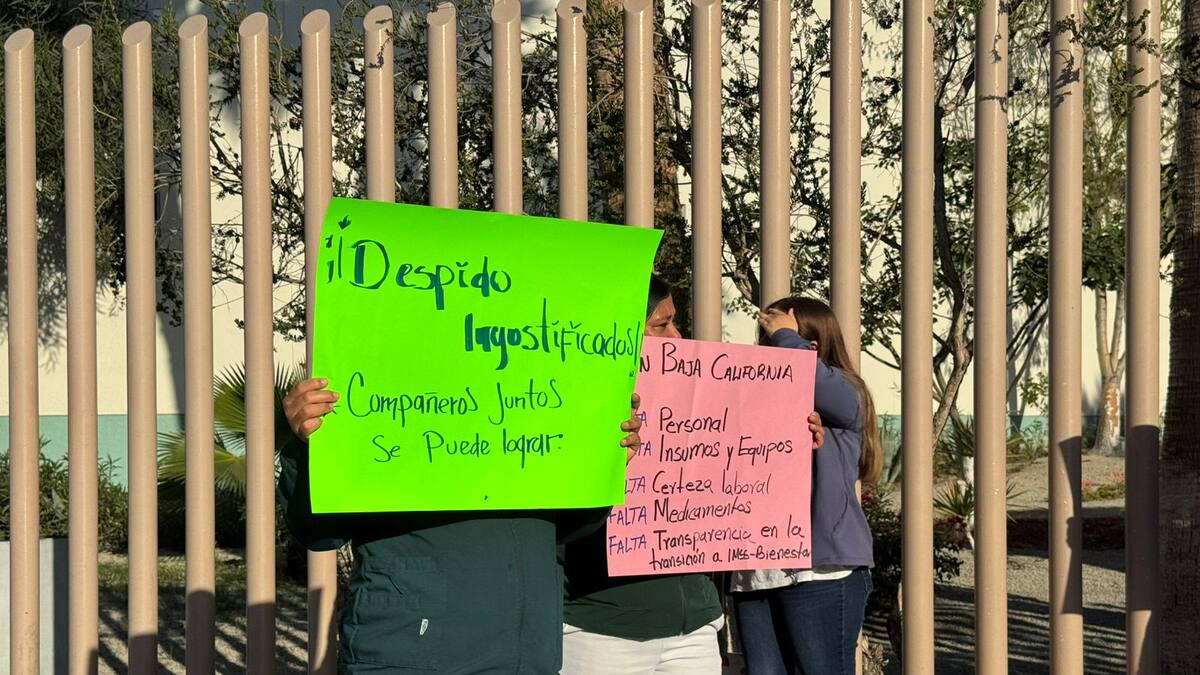 ¡¡Despido
Ingostificados!
Compañeros Juntos
Se Puede lograr.
N BAJA CALIFORNIA
TA Personal
TA Insumos y Equipos
LTA Certeza laboral
FALTA Medicamentos
FALTA Transparencia en la
transición a IMSS-Bienesta